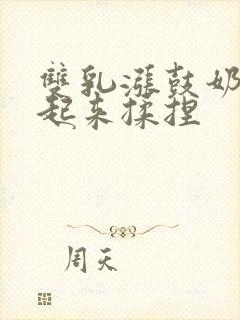 雙乳漲鼓奶
起来揉捏
周天